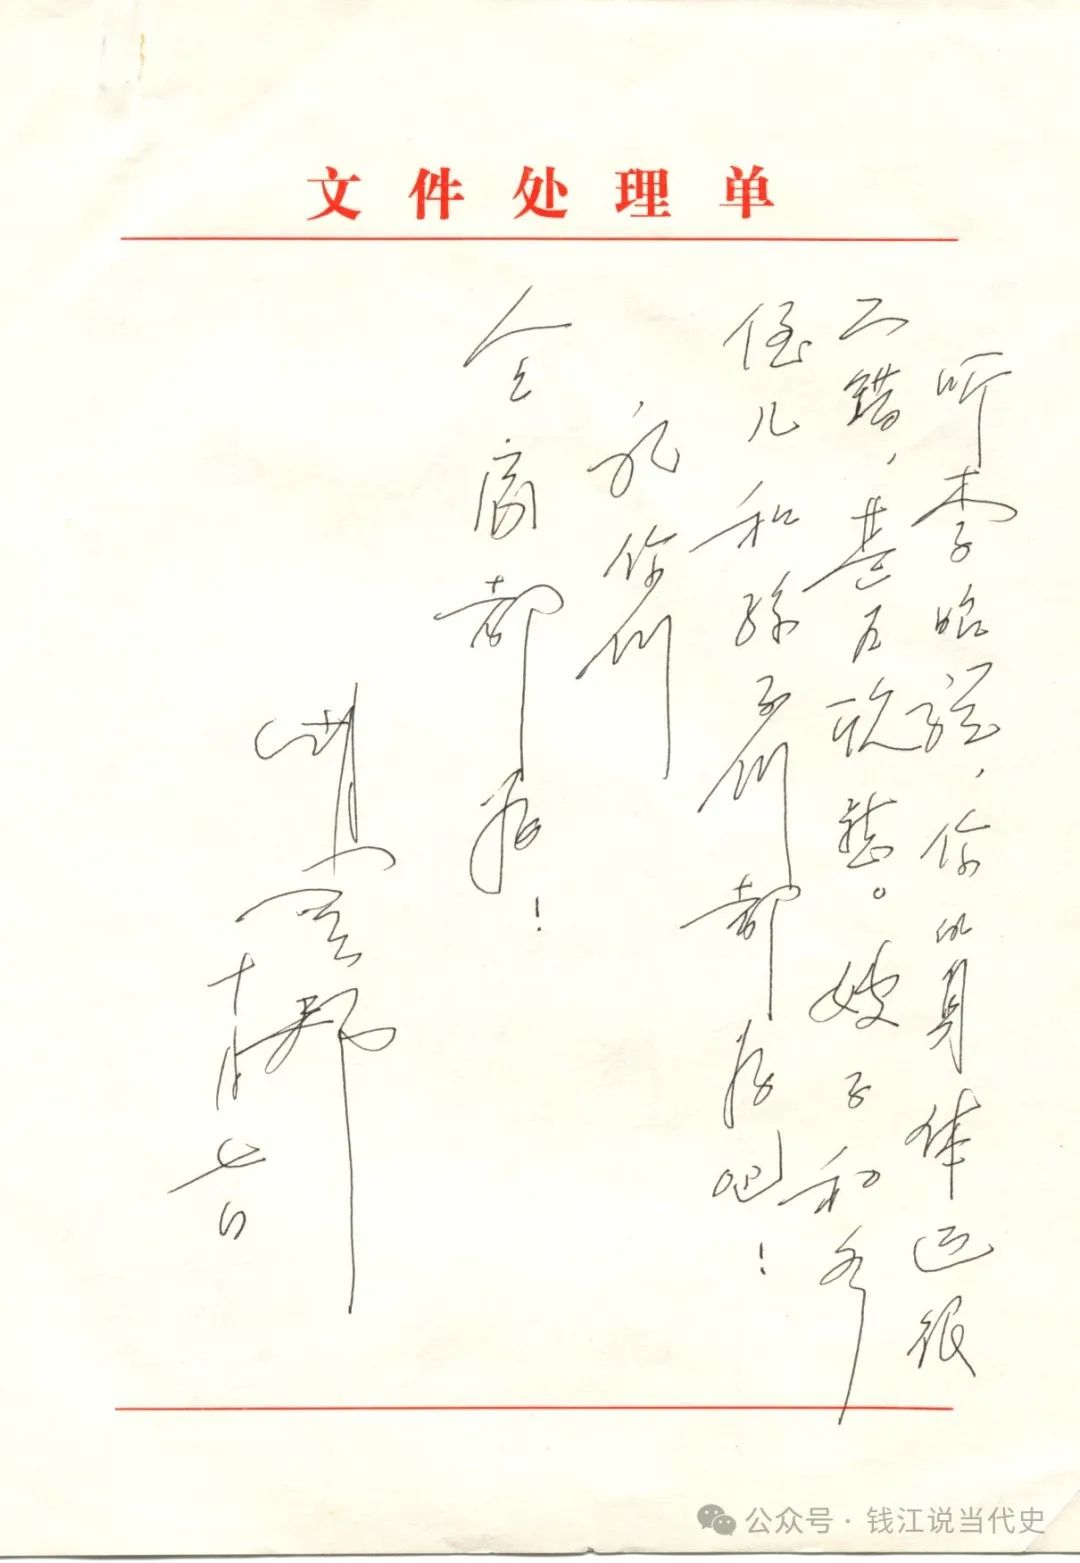 文件处理单
听李昭说，你的身体还很
不错，甚为欣慰。嫂子和
侄儿和孙子们都好吧！
祝你们
全家都好！
胡耀邦
十月七日
公众号·钱江说当代史